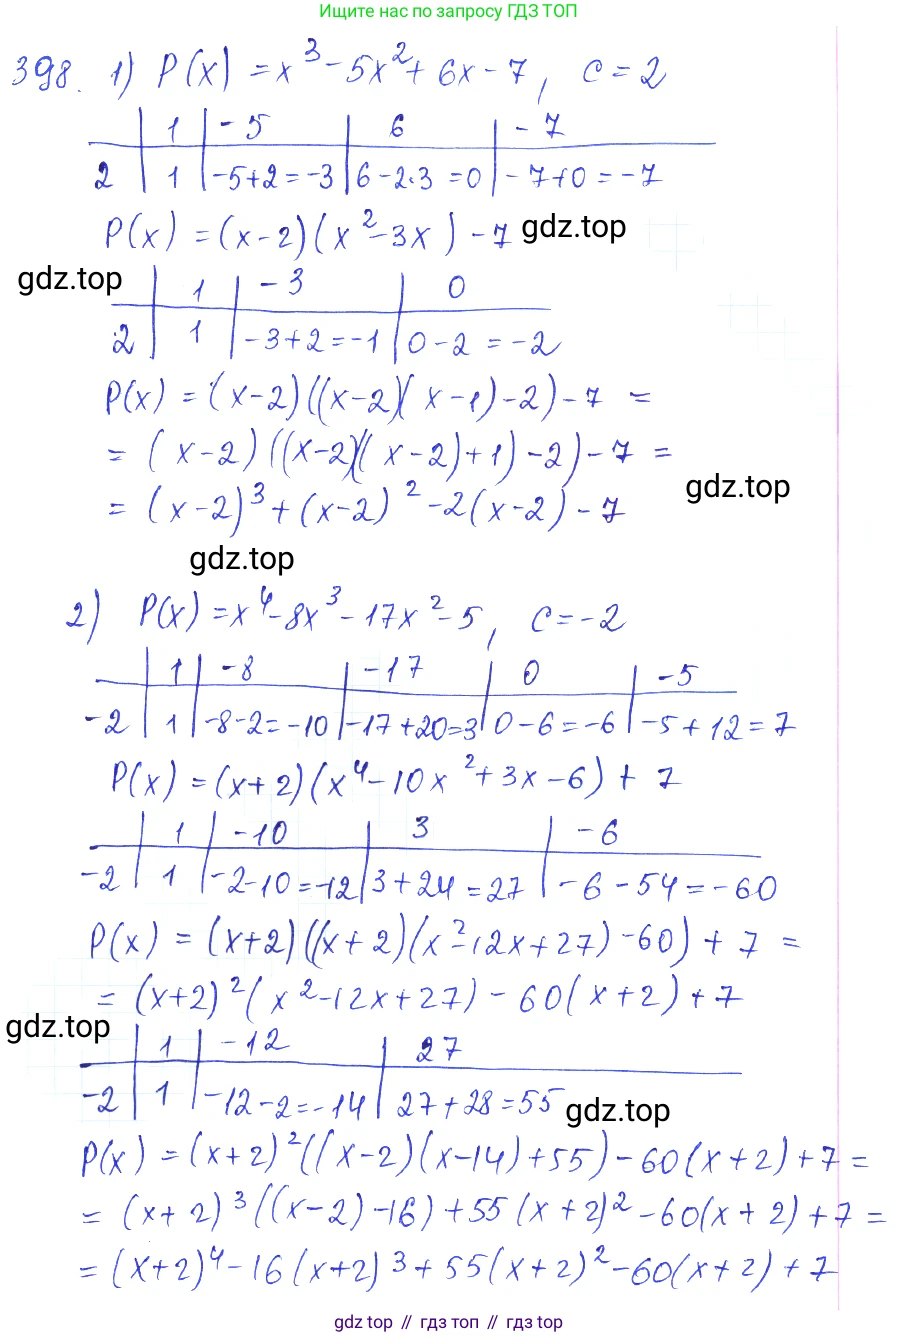 Ищите нас по запросу ГДЗ ТОП
398. 1) P(x) = x³ - 5x² + 6x - 7, c = 2
1 | -5 | 6 | -7
2 | 1 | -5+2=-3 | 6-2·3=0 | -7+0=-7
P(x) = (x-2)(x²-3x) - 7 gdz.top
gdz.top
1 | -3 | 0
2 | 1 | -3+2=-1 | 0-2=-2
P(x) = (x-2)((x-2)(x-1)-2)-7 =
= (x-2)((x-2)((x-2)+1)-2)-7 =
gdz.top
= (x-2)³+(x-2)²-2(x-2)-7
gdz.top
2) P(x) = x⁴-8x³-17x²-5, c=-2
1 | -8 | -17 | 0 | -5
-2 | 1 | -8-2=-10 | -17+20=3 | 0-6=-6 | -5+12=7
P(x) = (x+2)(x⁴-10x²+3x-6)+7
1 | -10 | 3 | -6
-2 | 1 | -2-10=-12 | 3+24=27 | -6-54=-60
P(x) = (x+2)((x+2)(x²-12x+27)-60)+7 =
= (x+2)²(x²-12x+27)-60(x+2)+7
gdz.top
1 | -12 | 27
-2 | 1 | -12-2=-14 | 27+28=55
gdz.top
P(x) = (x+2)²((x-2)(x-14)+55)-60(x+2)+7 =
= (x+2)³((x-2)-16)+55(x+2)²-60(x+2)+7 =
= (x+2)⁴-16(x+2)³+55(x+2)²-60(x+2)+7
gdz топ // гдз топ // gdz top